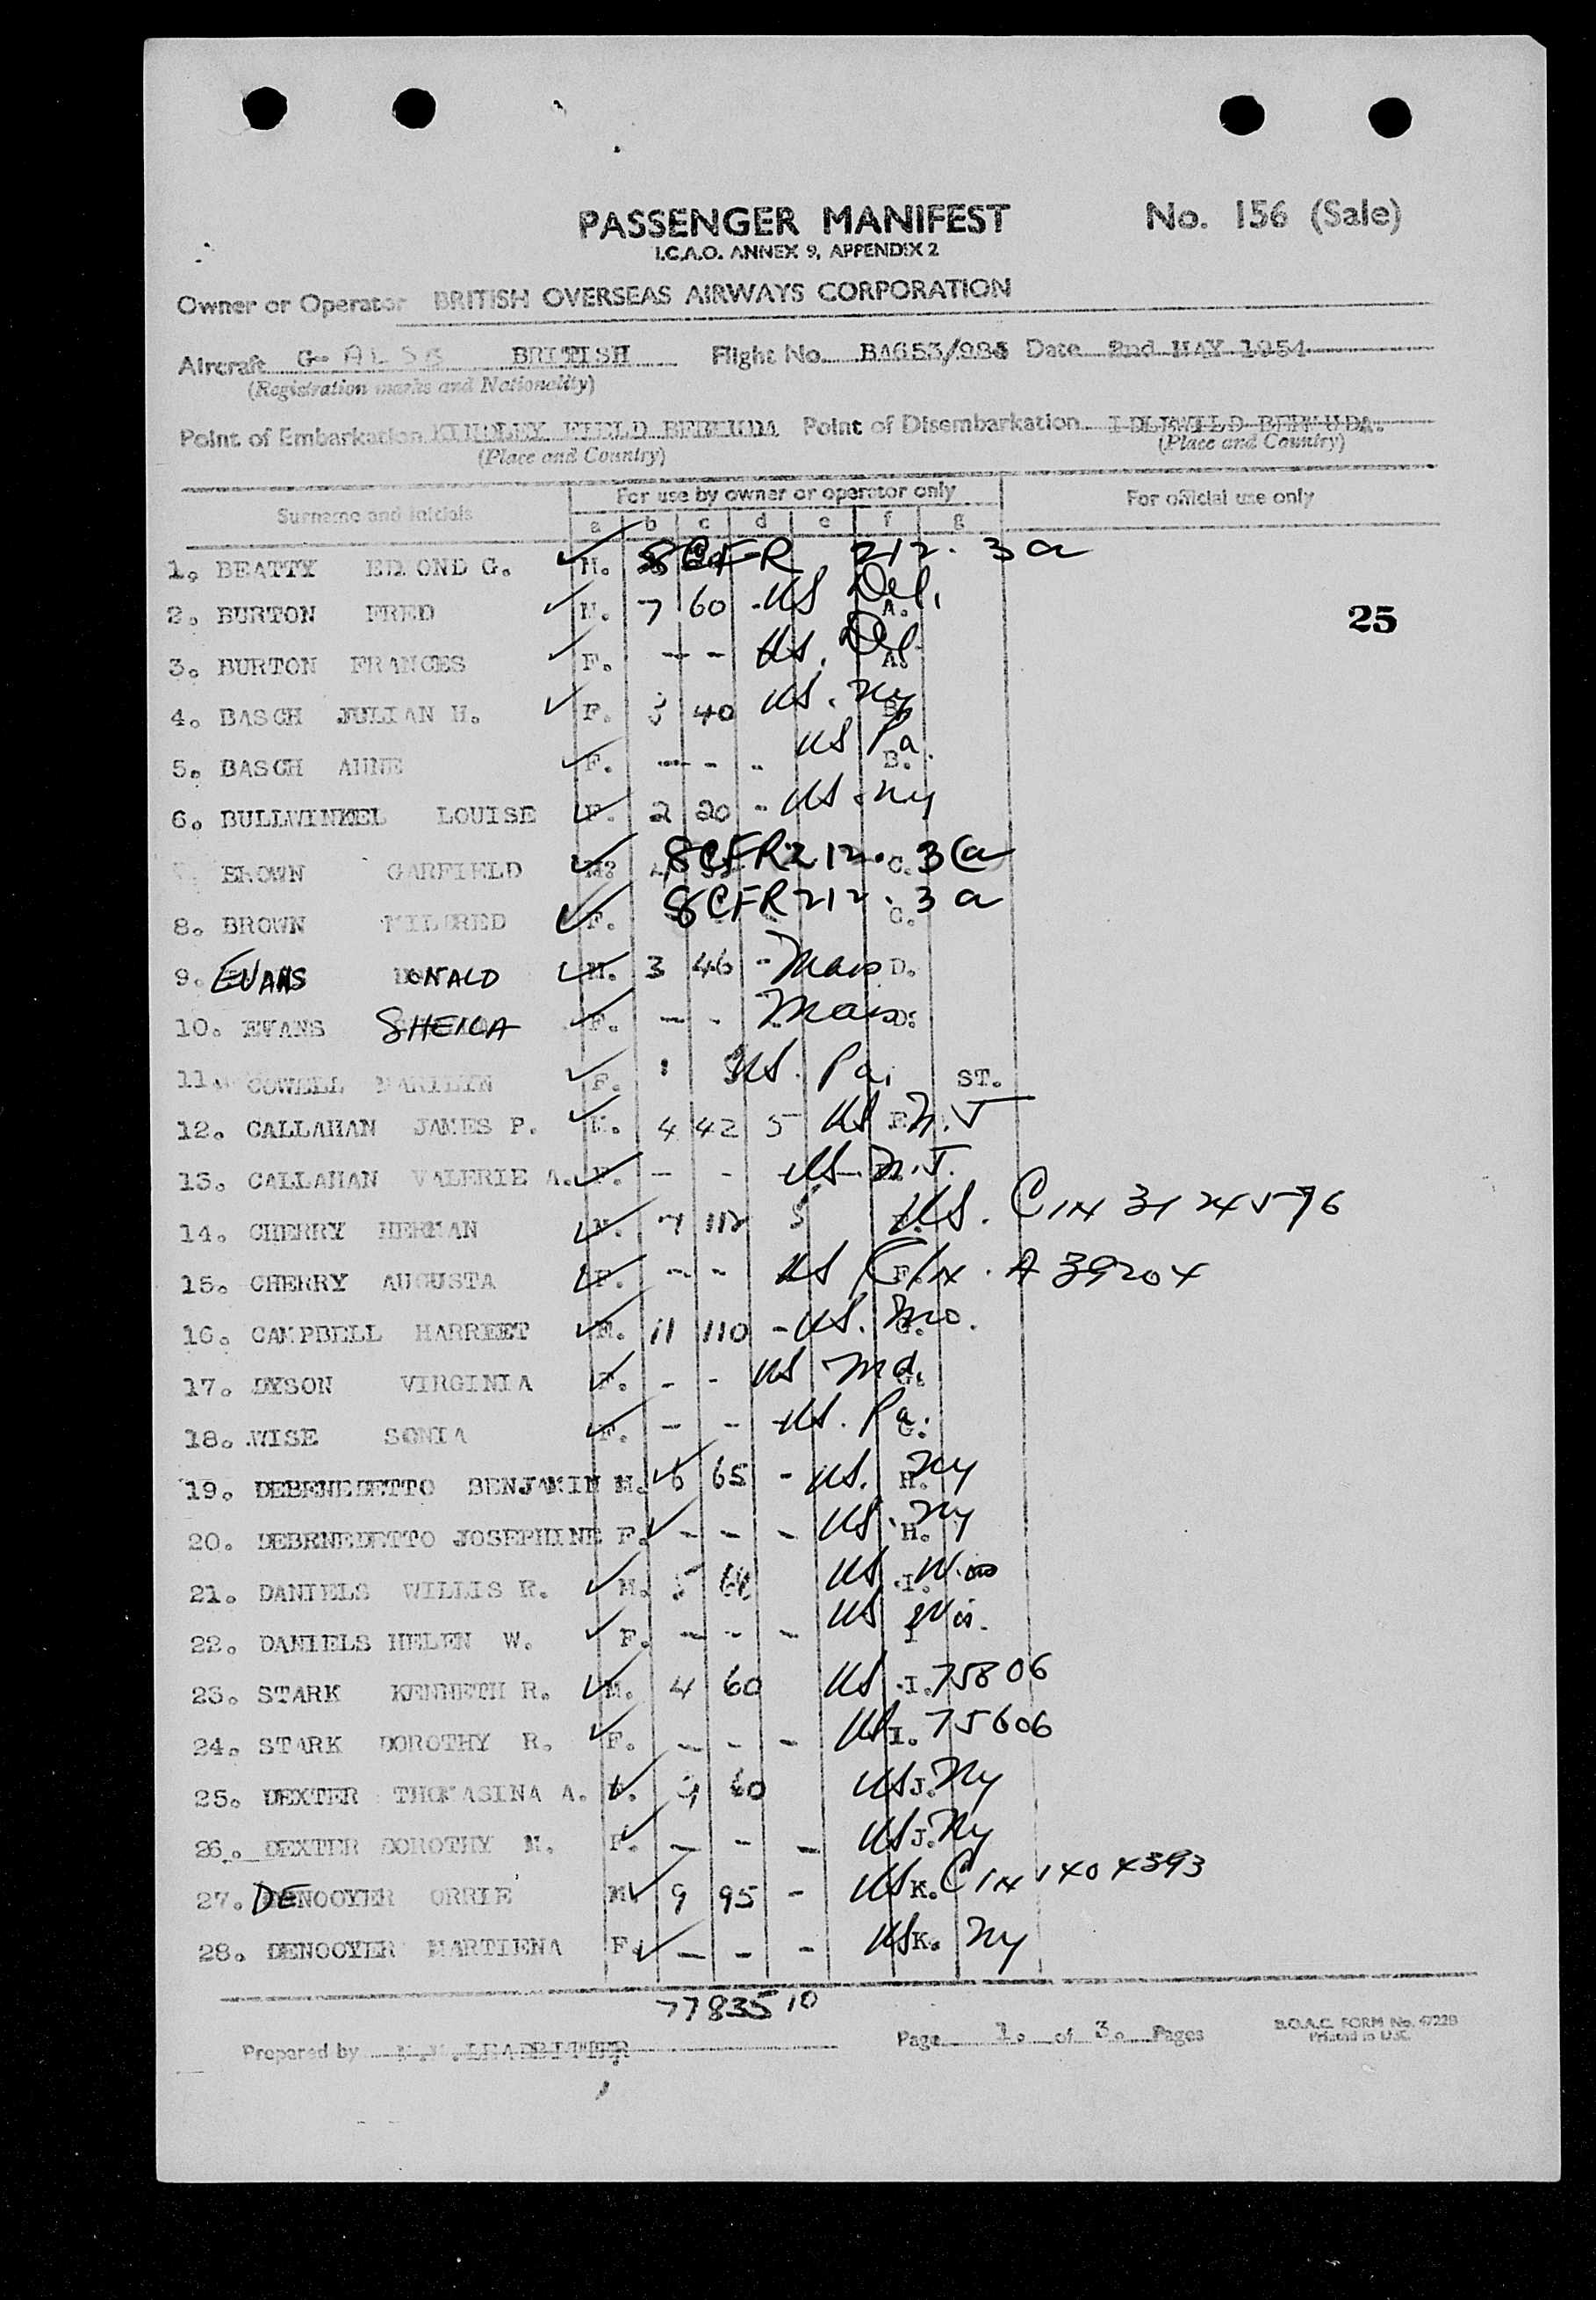 PASSENGER MANIFEST No. 156 (Sale)
I.C.A.O. ANNEX 9, APPENDIX 2
Owner or Operator BRITISH OVERSEAS AIRWAYS CORPORATION
Aircraft G- BRITISH Flight No. Date 2nd MAY 1954
(Registration marks and Nationality)
Point of Embarkation KINDLEY FIELD BERMUDA Point of Disembarkation IDLEWILD BERMUDA.
(Place and Country) (Place and Country)
For use by owner or operator only For official use only
Surname and initials a b c d e f g
1. BEATTY EDMOND G. M. 8 CFR 212.3a
2. BURTON FRED M. 7 60 - US Del. A.
25
3. BURTON FRANCES F. - - US. Del A.
4. BASCH JULIAN H. F. 3 40 US. NY B.
5. BASCH ANNE F. - - - US Pa. B.
6. BULLWINKEL LOUISE F. 2 20 - US. NY
7. BROWN GARFIELD M. 8CFR212.3(a C.
8. BROWN MILDRED F. 8CFR212.3a C.
9. EVANS DONALD M. 3 46 - Mass D.
10. EVANS SHEILA F. - - Mass D.
11. COWELL MARILYN F. 1 US. Pa. ST.
12. CALLAHAN JAMES P. M. 4 42 5 US E. N.J
13. CALLAHAN VALERIE A. F. - - US N.J.
14. CHERRY HERMAN M. 7 112 5 US.
15. CHERRY AUGUSTA F. - - US F. A 39204
16. CAMPBELL HARRIET M. 11 110 - US. Mo. G.
17. DYSON VIRGINIA F. - - US Md. G.
18. WISE SONIA F. - - US. Pa. G.
19. DEBENEDETTO BENJAMIN M. 6 65 - US. H. NY
20. DEBENEDETTO JOSEPHINE F. - - - US. H. NY
21. DANIELS WILLIS R. M. 5 US I. Wis
22. DANIELS HELEN W. F. - - - US I Wis.
23. STARK KENNETH R. M. 4 60 US I. 75806
24. STARK DOROTHY R. F. - - - US I. 75606
25. DEXTER THOMASINA A. F. 60 US J. NY
26. DEXTER DOROTHY M. F. - - - US J. NY
27. DENOOYER ORRIE M. 9 95 - US K.
28. DENOOYER MARTIENA F. - - - US K. NY
77 835 10
Prepared by Page 1. of 3. Pages
B.O.A.C. FORM No. 4722B
Printed in U.K.